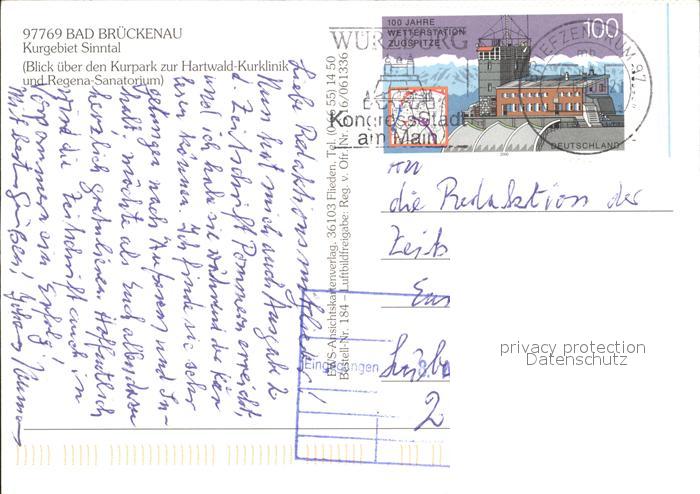 97769 BAD BRÜCKENAU
Kurgebiet Sinntal
(Blick über den Kurpark zur Hartwald-Kurklinik
und Regena-Sanatorium)
Liebe Redaktionsmitglieder!
Nun hat mich auch Ausgabe 2
d. Zeitschrift Pommern erreicht,
und ich habe sie während der Kur
lesen können. Ich finde sie sehr
gelungen nach Äußerem und In-
halt, möchte als Euch allen dazu
herzlich gratulieren. Hoffentlich
wird die Zeitschrift auch in
Vorpommern ein Erfolg!
Mit besten Grüßen!
EWS-Ansichtskartenverlag, 36103 Flieden, Tel. (0 66 55) 14 50
Bestell-Nr. 184 – Luftbildfreigabe: Reg. v. Ofr. Nr.
100 JAHRE
WETTERSTATION
ZUGSPITZE
100
DEUTSCHLAND
2000
WÜRZBURG
Kongressstadt
am Main
BRIEFZENTRUM 97
mb
An
die Redaktion der
Zeits
2
Eingegangen
privacy protection
Datenschutz